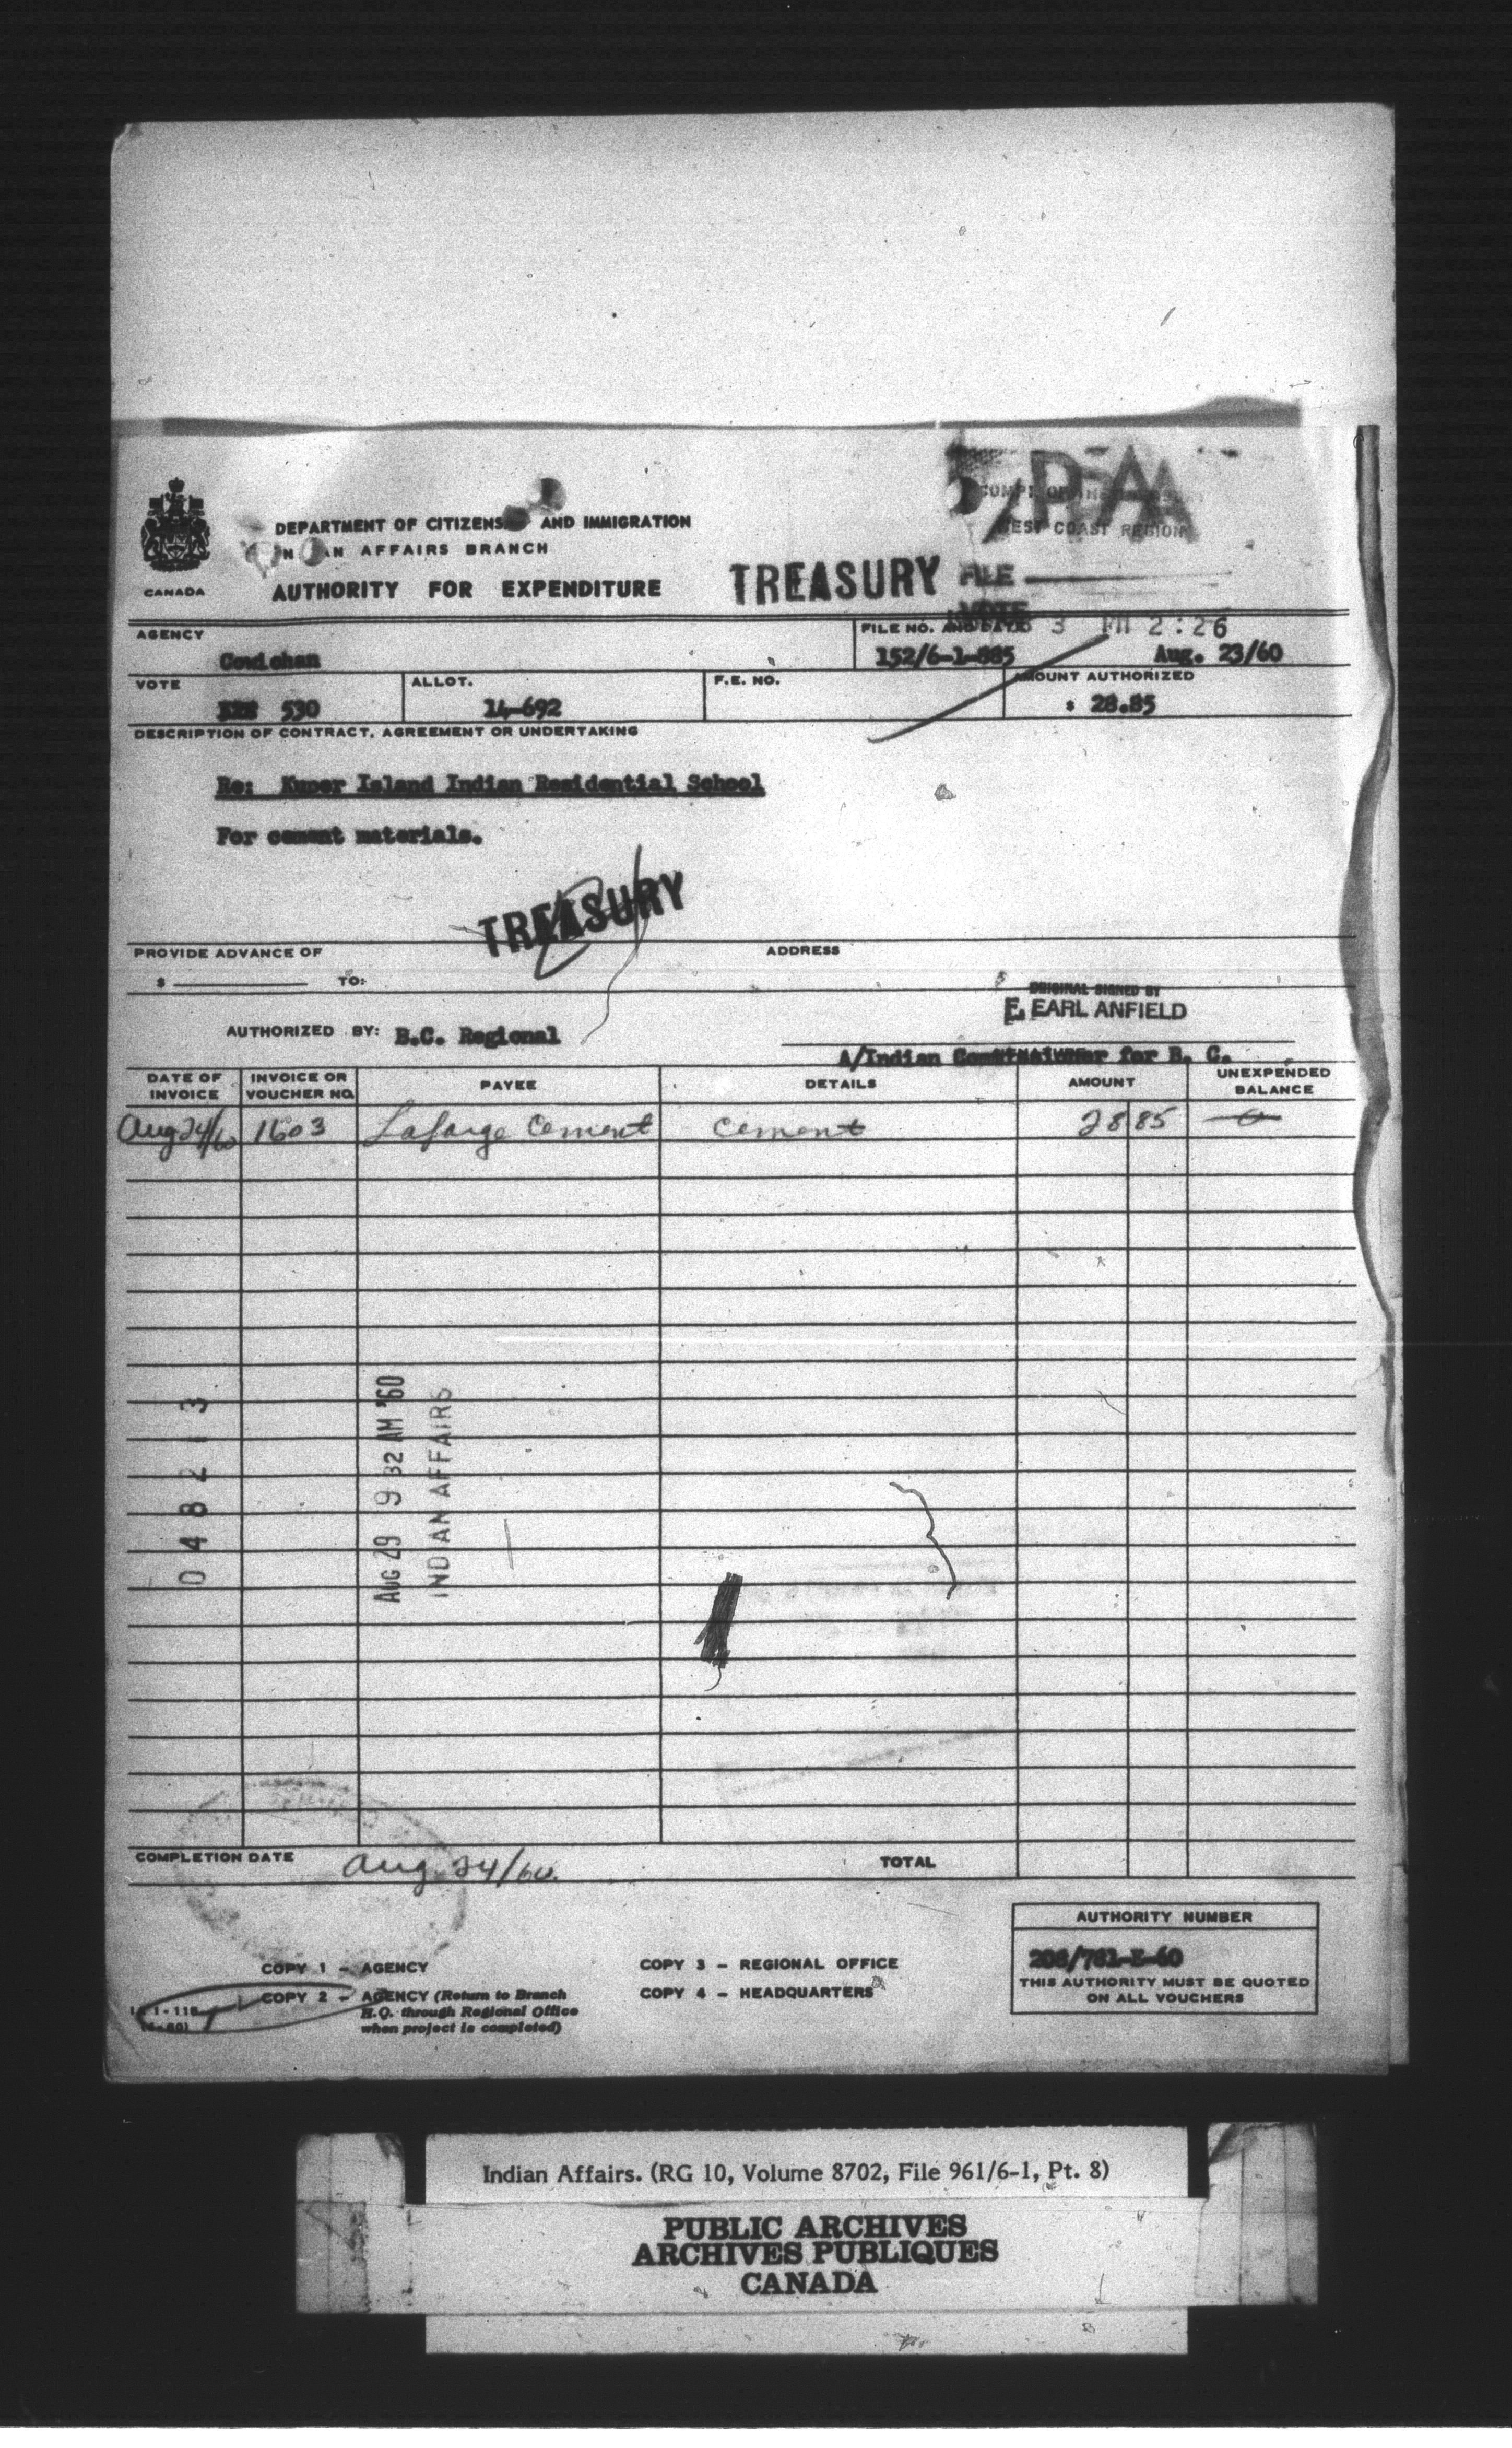 DEPARTMENT OF CITIZENS AND IMMIGRATION
AN AFFAIRS BRANCH
CANADA
AUTHORITY FOR EXPENDITURE
TREASURY
COMPT OF THE
WEST COAST REGION
FILE
VOTE
3 PM 2:26
AGENCY
Cowichan
FILE NO. AND DATE
152/6-1-885 Aug. 23/60
VOTE
530
ALLOT.
14-692
F.E. NO.
AMOUNT AUTHORIZED
$ 28.85
DESCRIPTION OF CONTRACT, AGREEMENT OR UNDERTAKING
Re: Kuper Island Indian Residential School
For cement materials.
TREASURY
PROVIDE ADVANCE OF
$ TO:
ADDRESS
ORIGINAL SIGNED BY
F. EARL ANFIELD
AUTHORIZED BY: B.C. Regional
A/Indian Commissioner for B. C.
DATE OF INVOICE
INVOICE OR VOUCHER NO.
PAYEE
DETAILS
AMOUNT
UNEXPENDED BALANCE
Aug 24/60 1603 Lafarge Cement Cement 28 85 0
0 4 8 2 1 3
AUG 29 9 32 AM '60
INDIAN AFFAIRS
COMPLETION DATE Aug. 24/60.
TOTAL
AUTHORITY NUMBER
208/781-E-60
THIS AUTHORITY MUST BE QUOTED
ON ALL VOUCHERS
COPY 1 - AGENCY
COPY 2 - AGENCY (Return to Branch
H.Q. through Regional Office
when project is completed)
COPY 3 - REGIONAL OFFICE
COPY 4 - HEADQUARTERS
1-118
Indian Affairs. (RG 10, Volume 8702, File 961/6-1, Pt. 8)
PUBLIC ARCHIVES
ARCHIVES PUBLIQUES
CANADA